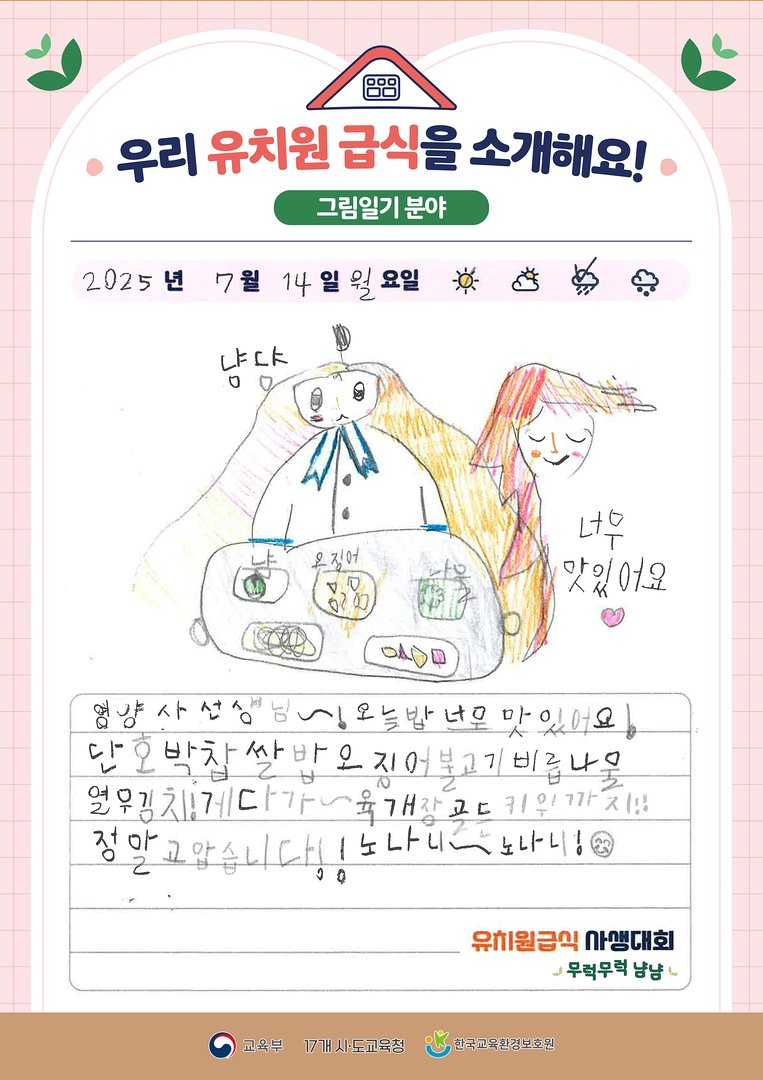 우리 유치원 급식을 소개해요!
그림일기 분야
2025년 7월 14일 월요일
냠냐
너무
맛있어요
냠
오징어
나물
영양사 선생님~! 오늘밥 너무 맛있어요!
단호박찹쌀밥 오징어불고기 비름나물
열무김치! 게다가~ 육개장 골드키위까지!!
정말 고맙습니다!! 노나니~ 노나니!
유치원급식 사생대회
무럭무럭 냠냠
교육부 17개 시·도교육청 한국교육환경보호원